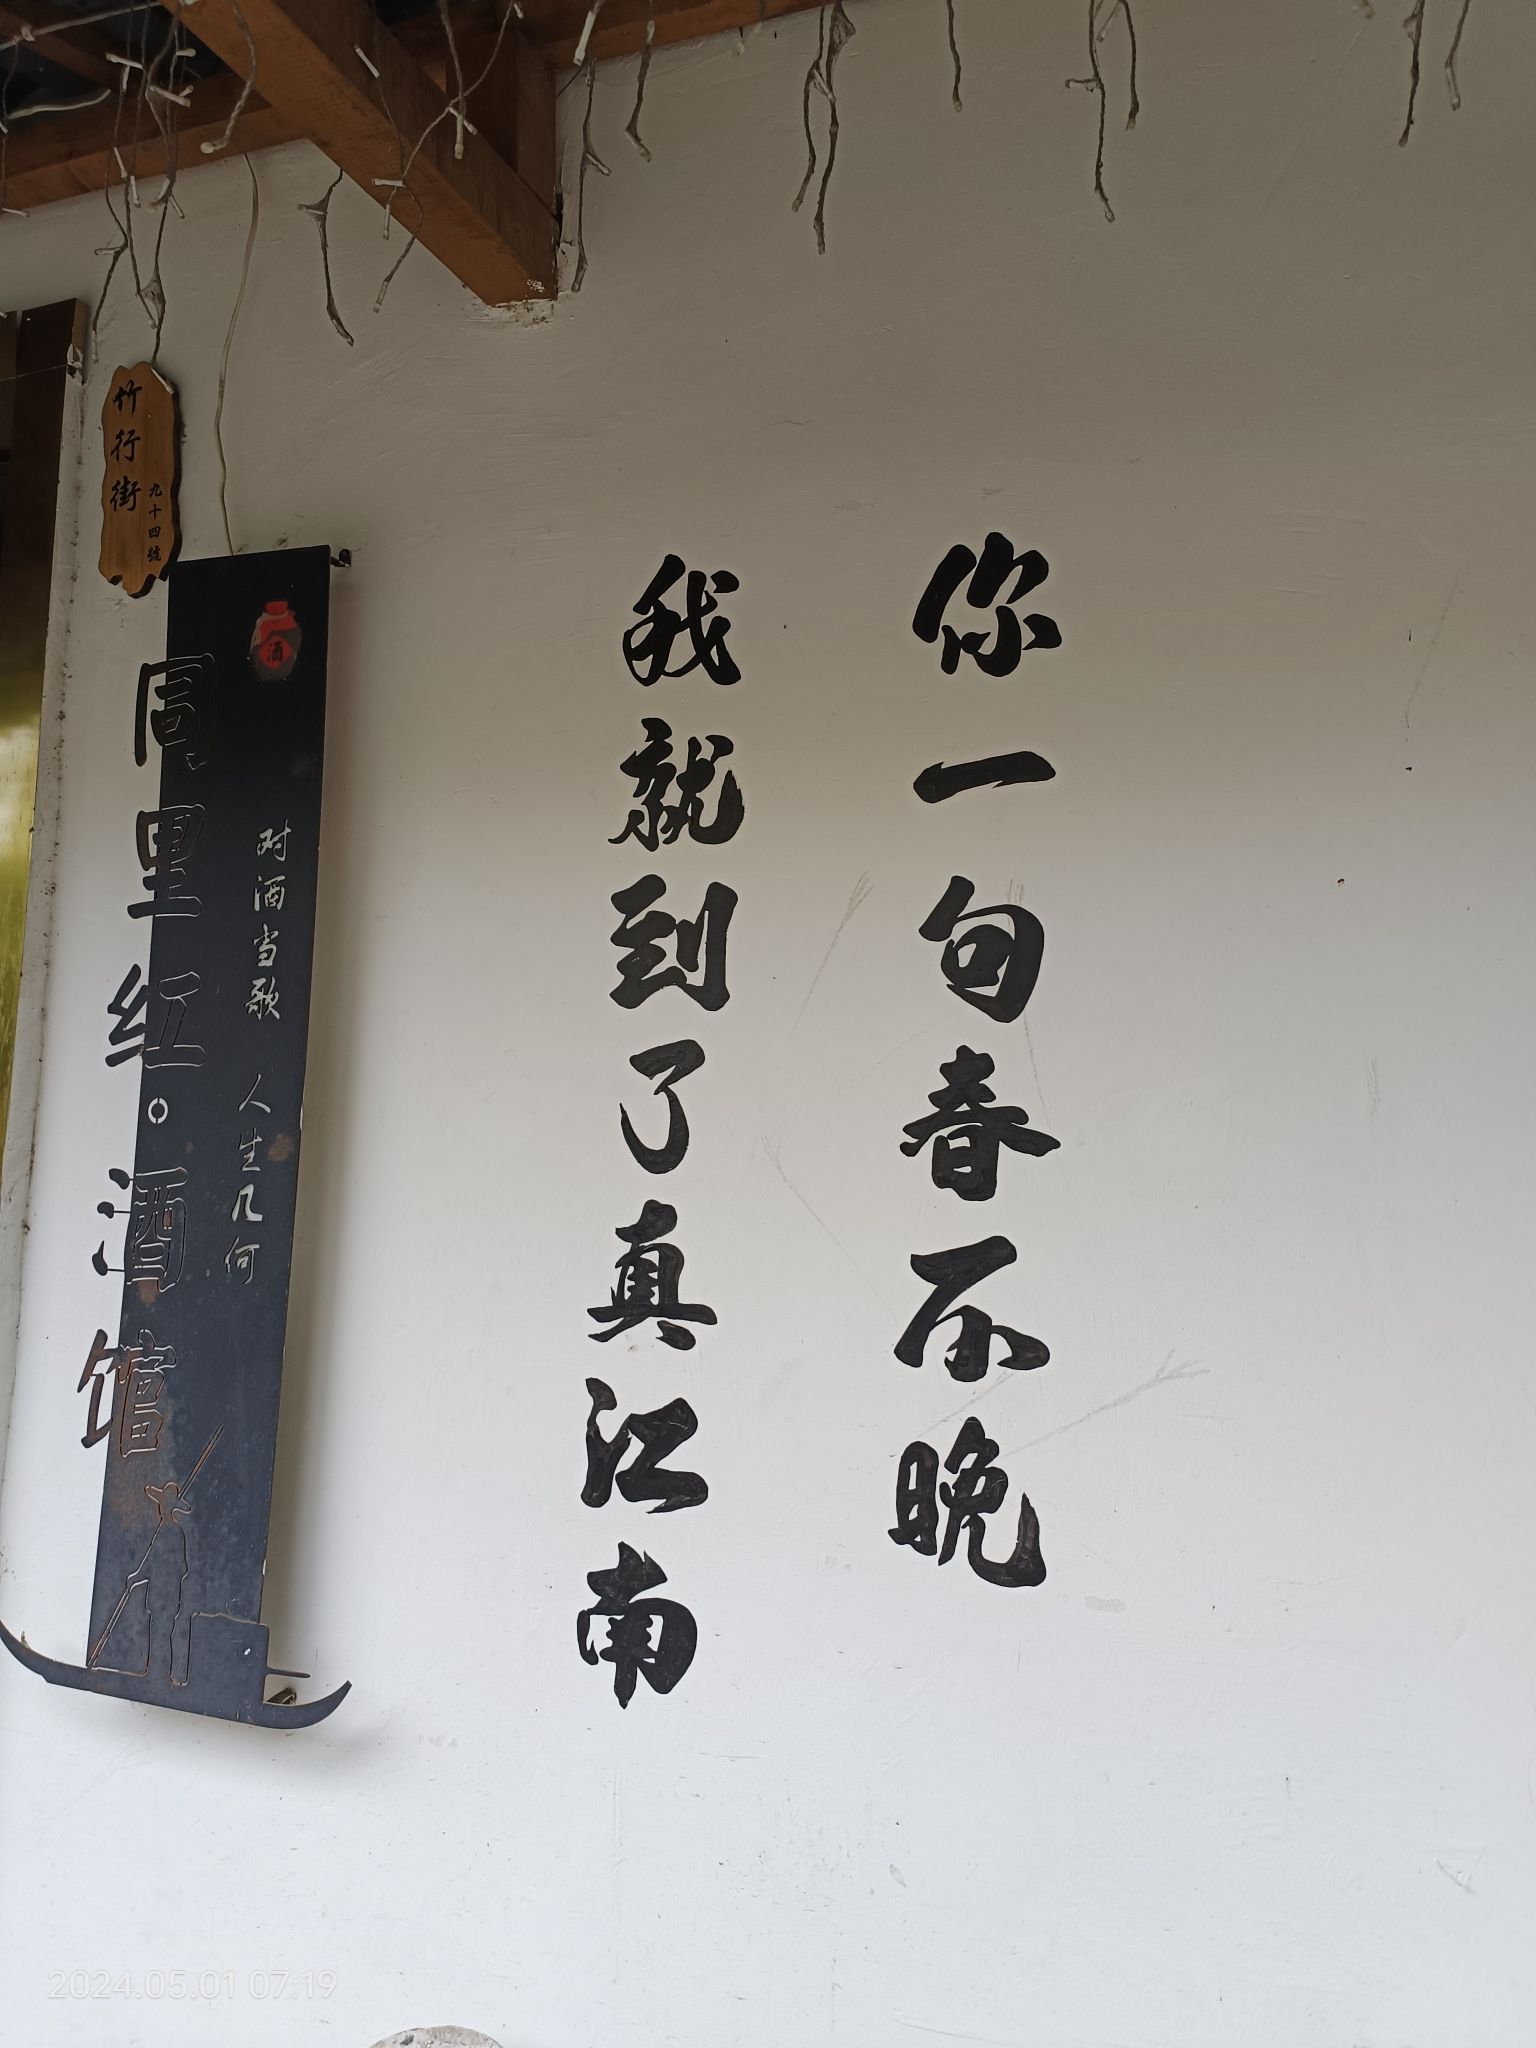 你一句春不晚
我就到了真江南
竹行街
九十四號
酒
对酒当歌 人生几何
同里红。酒馆
2024.05.01 07:19